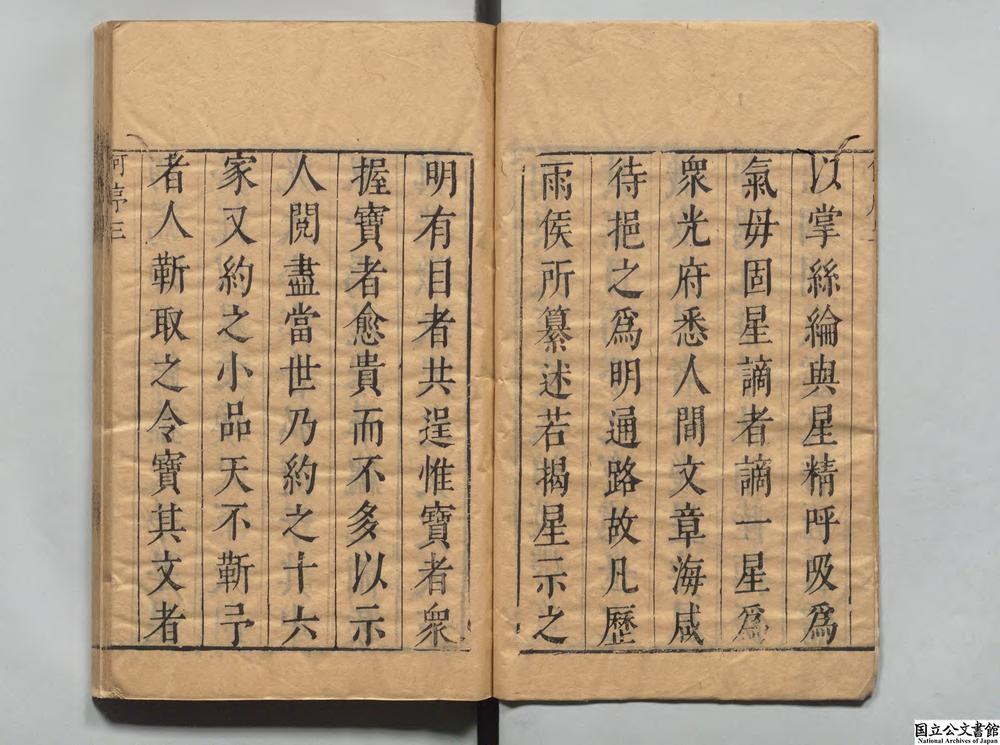 以掌絲綸與星精呼吸爲
氣毋固星謫者謫一星爲
衆光府悉人間文章海咸
待挹之爲明通路故凡歷
雨侯所纂述若揭星示之
明有目者共逞惟寶者衆
握寶者愈貴而不多以示
人閱盡當世乃約之十六
家又約之小品天不靳予
者人靳取之令寶其文者
何序三
国立公文書館
National Archives of Japan